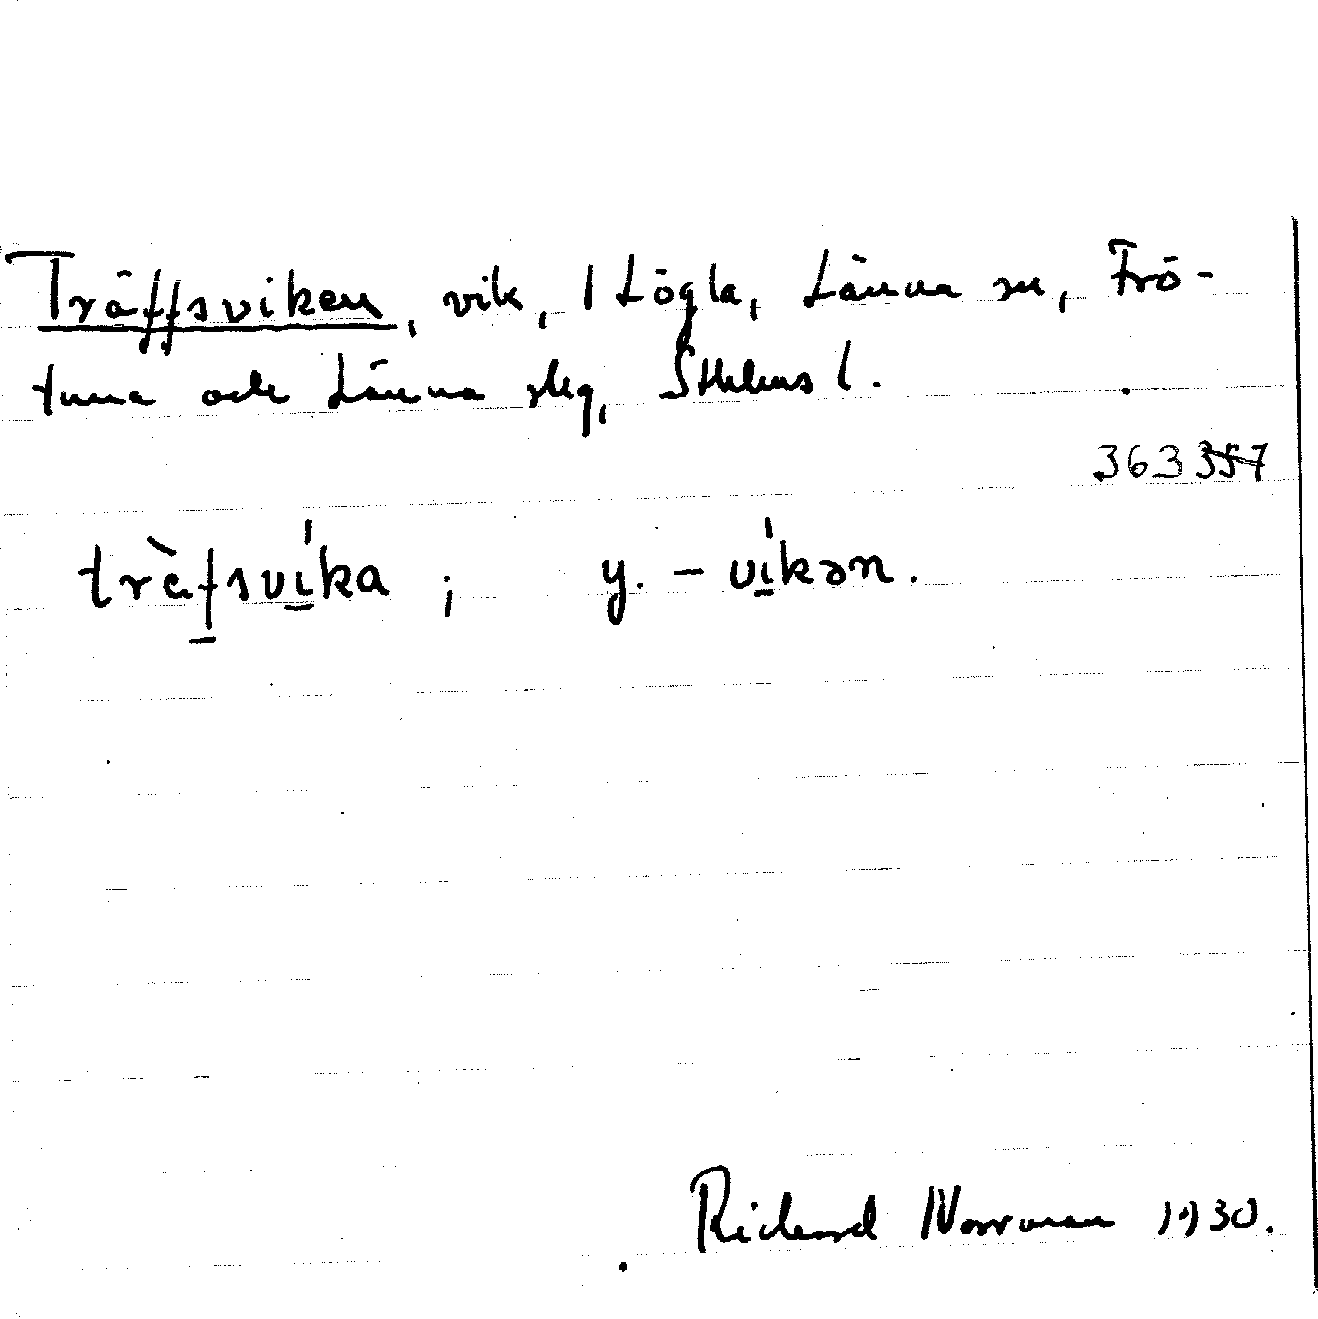 Träffsviken, vik, 1 Lögla, Länna sn, Frö-
tuna och Länna slg, Sthlms l.
363357
trèfsvíka ; y. – víkən.
Richard Norrman 1930.